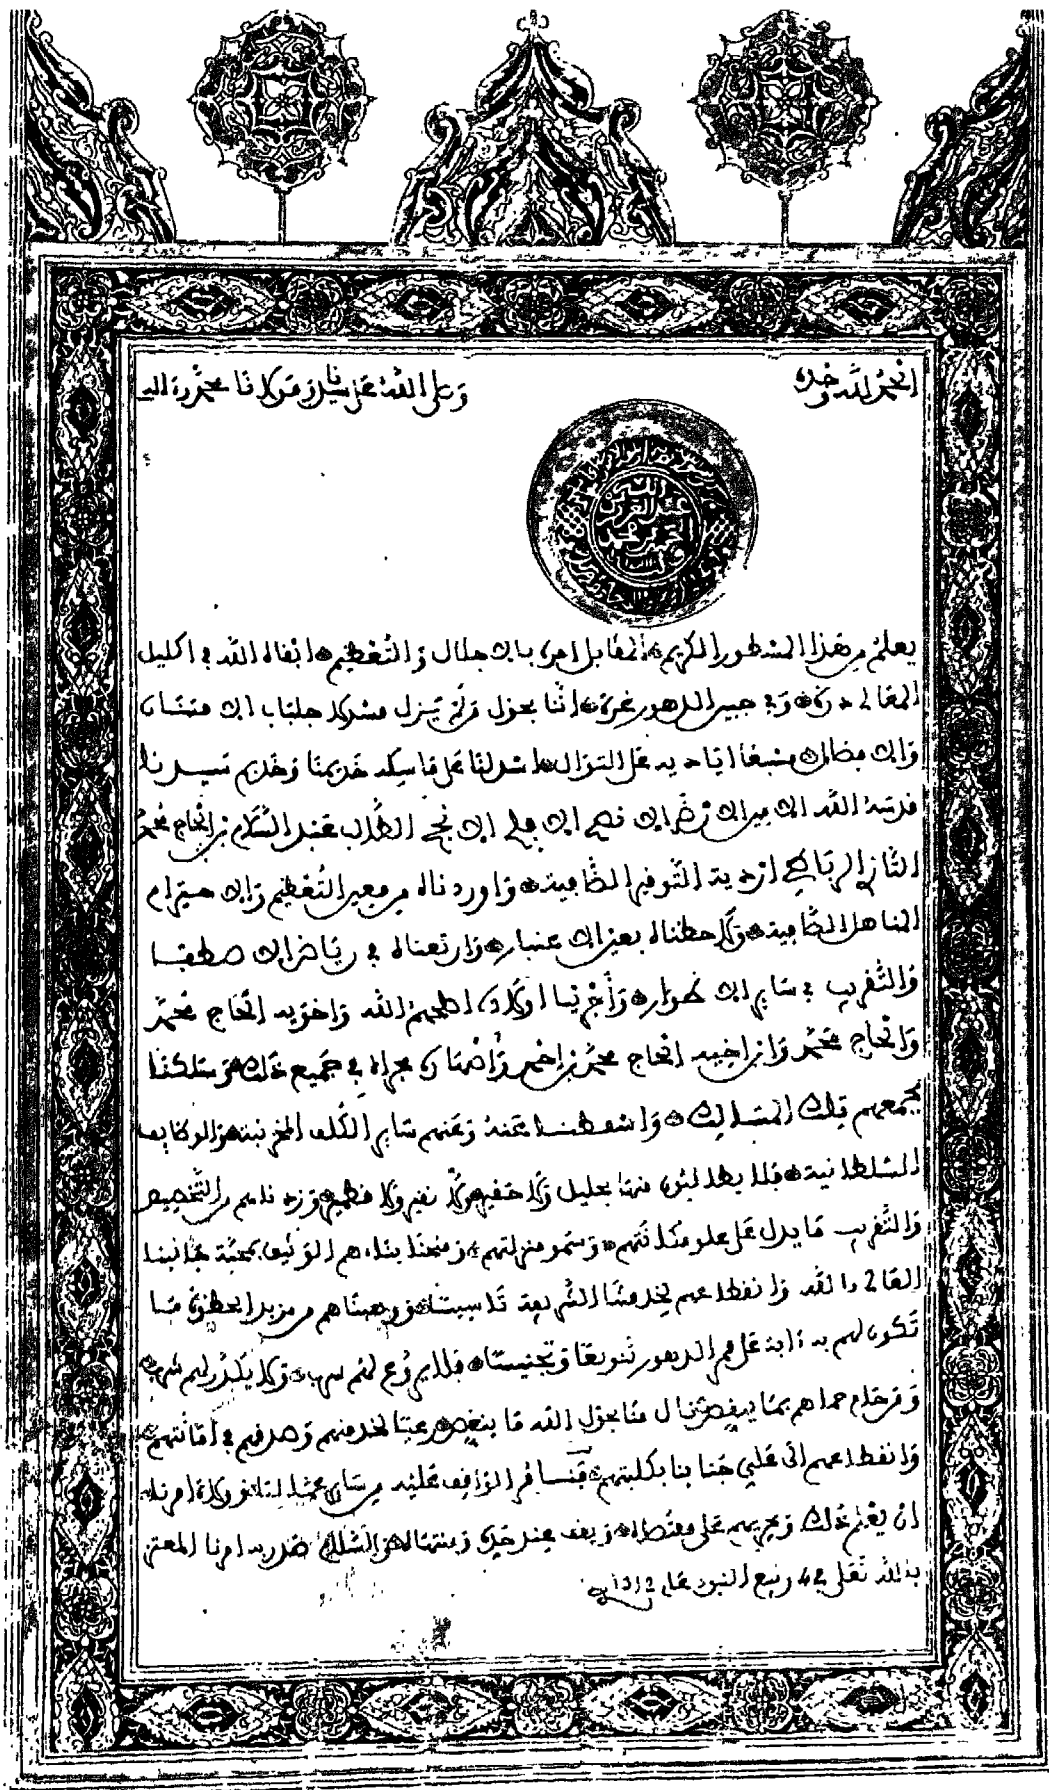 الحمد لله وحده وصلى الله على سيدنا ومولانا محمد وآله
عبد العزيز بن الحسن
يعلم من هذا المسطور الكريم المقابل أمره بالاجلال والتعظيم أبقاه الله في اكليل
المعالي درة وفي جبين الدهور غرة اننا بحول من لم يزل مسدلا جلباب الامتنان
والافضال مسبغا اياديه على التوال اسدلنا على ماسكه خديمنا وخديم سيدنا
قدسه الله الاميرال الارضى الافصح الابلج الانجح الطالب عبد السلام بن الحاج محمد
التازي الرباطي اردية التوقير الضافية واوردناه من معين التعظيم والاحترام
المناهل الصافية ولاحظناه بعين الاعتبار وارتعناه في رياض الاصطفا
والتقريب في ساير الاطوار وأجرينا اولاده اصلحهم الله واخويه الحاج محمد
والحاج محمد وابن اخيه الحاج محمد بن احمد واصهاره مجراه في جميع ذلك وسلكنا
بجميعهم تلك المسالك واسقطنا عنه وعنهم ساير الكلف المخزنية والوظايف
السلطانية فلا يطالبون منها بجليل ولا حقير ولا نقير ولا قطمير وزدناهم من التخصيص
والتقريب ما يدل على علو مكانتهم وسمو منزلتهم ومنحنا بناءهم الوثيق بمحبة جانبنا
العالي بالله وانقطاعهم لخدمتنا الشريفة تاسيسا ووهبناهم من مزيد الحظوة ما
تكون لهم به اذاية على ممر الدهور تنويها وتجنيسا فلا يروع لهم سرب ولا يكدر لهم شرب
ومن رام حماهم بما ينقص ينال منا بحول الله ما ينغص رعيا لخدمتهم وصدقهم في أمانتهم
وانقطاعهم الى علي جنابنا بكليتهم فنامر الواقف عليه من ساير عمالنا وولاة امرنا
ان يعلم ذلك ويجريهم على مقتضاه ويقف عند حده ومنتهاه والسلام صدر به امرنا المعتز
بالله تعالى في 4 ربيع النبوي عام 1312